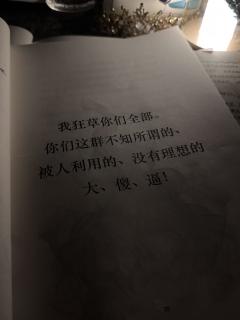 我狂草你们全部。
你们这群不知所谓的、
被人利用的、没有理想的
大、傻、逼！